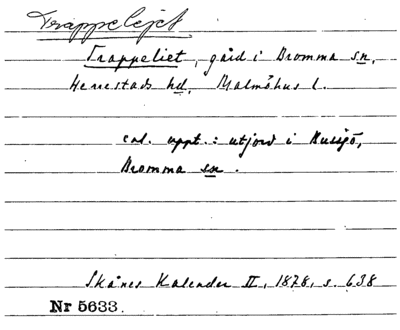 Trappelejet
Trappeliet, gård i Bromma sn,
Herrestads hd, Malmöhus l.
enl. uppt.: utjord i Bussjö,
Bromma sn.
Skånes Kalender II, 1878, s. 638
Nr 5633.